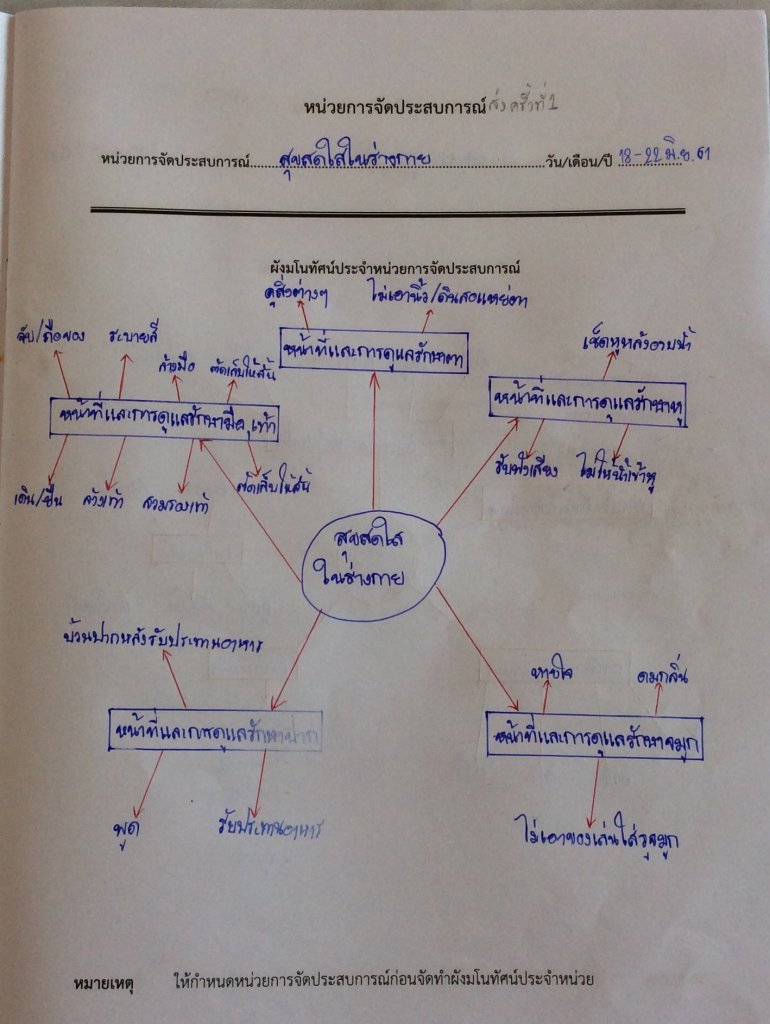 หน่วยการจัดประสบการณ์ ส่งครั้งที่ 1
หน่วยการจัดประสบการณ์.....สุขสดใสในร่างกาย.....วัน/เดือน/ปี 18-22 มิ.ย. 61
ผังมโนทัศน์ประจำหน่วยการจัดประสบการณ์
ดูสิ่งต่างๆ ไม่เอานิ้ว/ดินสอแหย่ตา
หน้าที่และการดูแลรักษาตา
จับ/ถือของ ระบายสี ล้างมือ ตัดเล็บให้สั้น
หน้าที่และการดูแลรักษามือ,เท้า
เดิน/ยืน ล้างเท้า สวมรองเท้า ตัดเล็บให้สั้น
เช็ดหูหลังอาบน้ำ
หน้าที่และการดูแลรักษาหู
รับฟังเสียง ไม่ให้น้ำเข้าหู
สุขสดใส
ในร่างกาย
บ้วนปากหลังรับประทานอาหาร
หน้าที่และการดูแลรักษาปาก
พูด รับประทานอาหาร
หายใจ ดมกลิ่น
หน้าที่และการดูแลรักษาจมูก
ไม่เอาของเล่นใส่รูจมูก
หมายเหตุ ให้กำหนดหน่วยการจัดประสบการณ์ก่อนจัดทำผังมโนทัศน์ประจำหน่วย